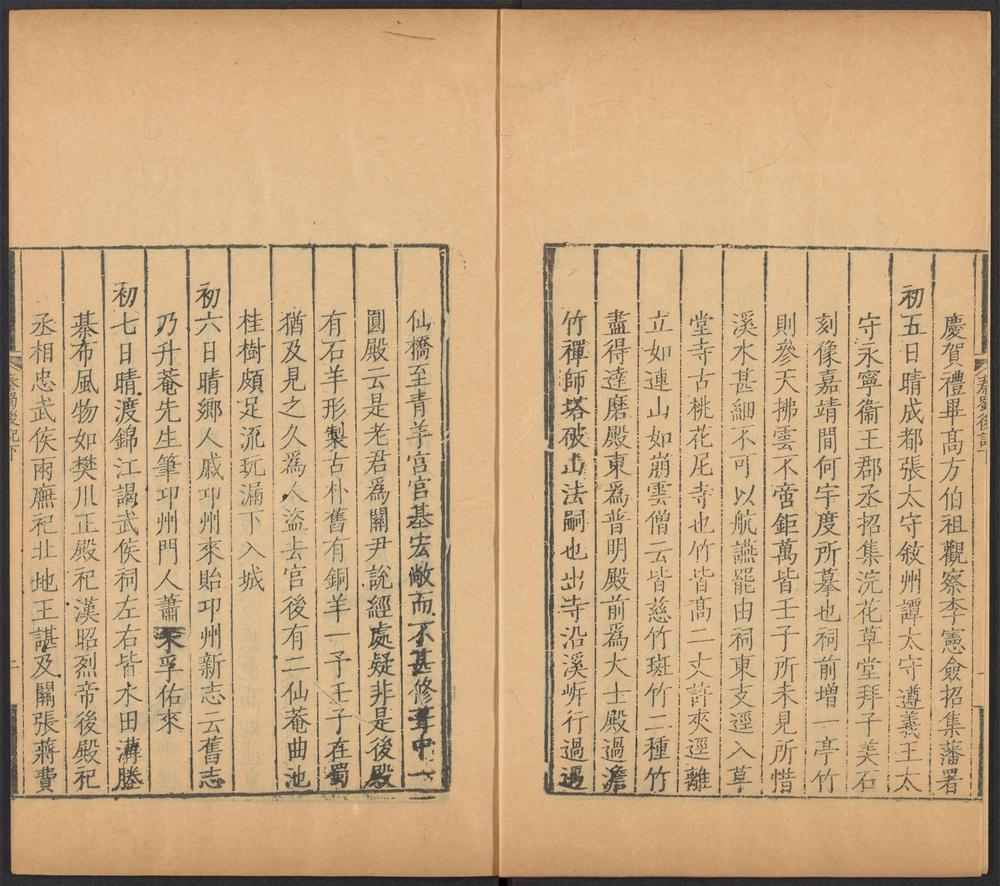 秦蜀後記下
慶賀禮畢高方伯祖觀察李憲僉招集藩署
初五日晴成都張太守敘州譚太守遵義王太
守永寧衞王郡丞招集浣花草堂拜子美石
刻像嘉靖間何宇度所摹也祠前增一亭竹
則參天拂雲不啻鉅萬皆壬子所未見所惜
溪水甚細不可以航讌罷由祠東支逕入草
堂寺古桃花尼寺也竹皆高二丈許夾逕離
立如連山如崩雲僧云皆慈竹斑竹二種竹
盡得達磨殿東為普明殿前為大士殿過澹
竹禪師塔破山法嗣也出寺沿溪岸行過遇
仙橋至青羊宮宮基宏敞而不甚修葺中一
圓殿云是老君為關尹說經處疑非是後殿
有石羊形製古朴舊有銅羊一予壬子在蜀
猶及見之久為人盜去宮後有二仙菴曲池
桂樹頗足流玩漏下入城
初六日晴鄉人戚邛州來貽邛州新志云舊志
乃升菴先生筆邛州門人蕭孚佑來
初七日晴渡錦江謁武侯祠左右皆水田溝塍
棊布風物如樊川正殿祀漢昭烈帝後殿祀
丞相忠武侯兩廡祀北地王諶及關張蔣費
秦蜀後記下